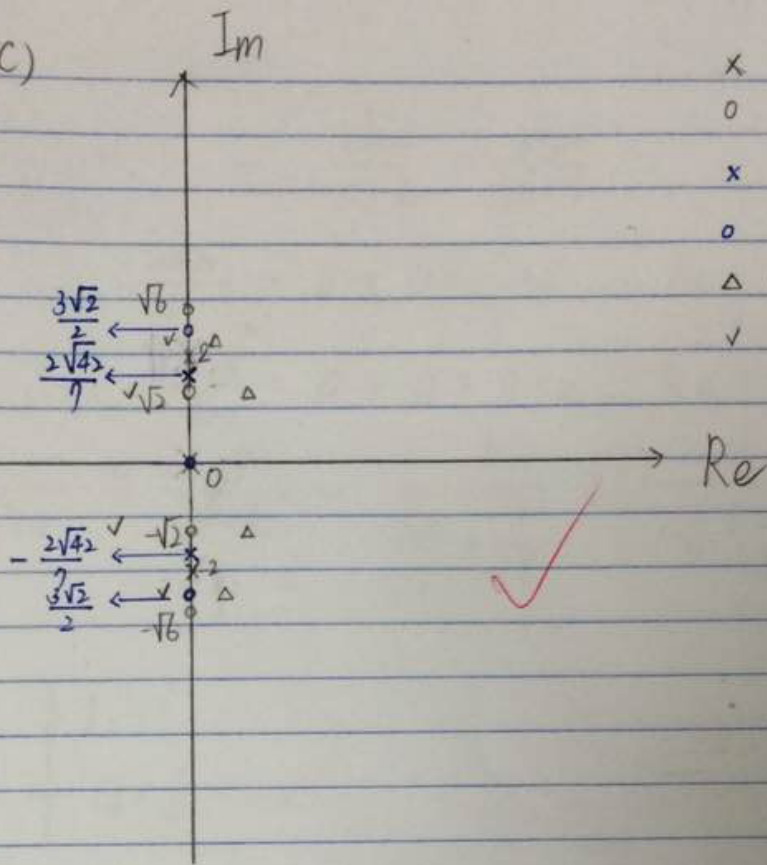 C)
Im
×
o
×
o
△
✓
3√2/2 ← √6
✓ △
2 
2√42/7 ← ✓ √2 △
0
Re
✓ -√2 △
- 2√42/7 ←
-2
3√2/2 ← ✓ △
-√6